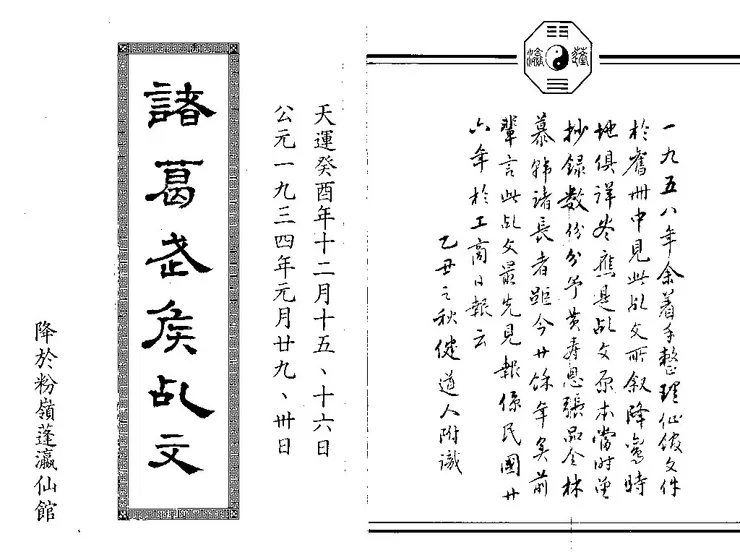 蓬瀛
一九五八年余着手整理仙館文件
於舊冊中見此乩文所敘降鸞時
地俱詳當應是乩文原本當時曾
抄錄數份分予黃秀恩張品全林
慕韓諸長者距今廿餘年矣前
輩言此乩文最先見報係民國廿
六年於工商日報云
乙丑之秋健道人附識
天運癸酉年十二月十五、十六日
公元一九三四年元月廿九、卅日
諸葛武侯乩文
降於粉嶺蓬瀛仙館